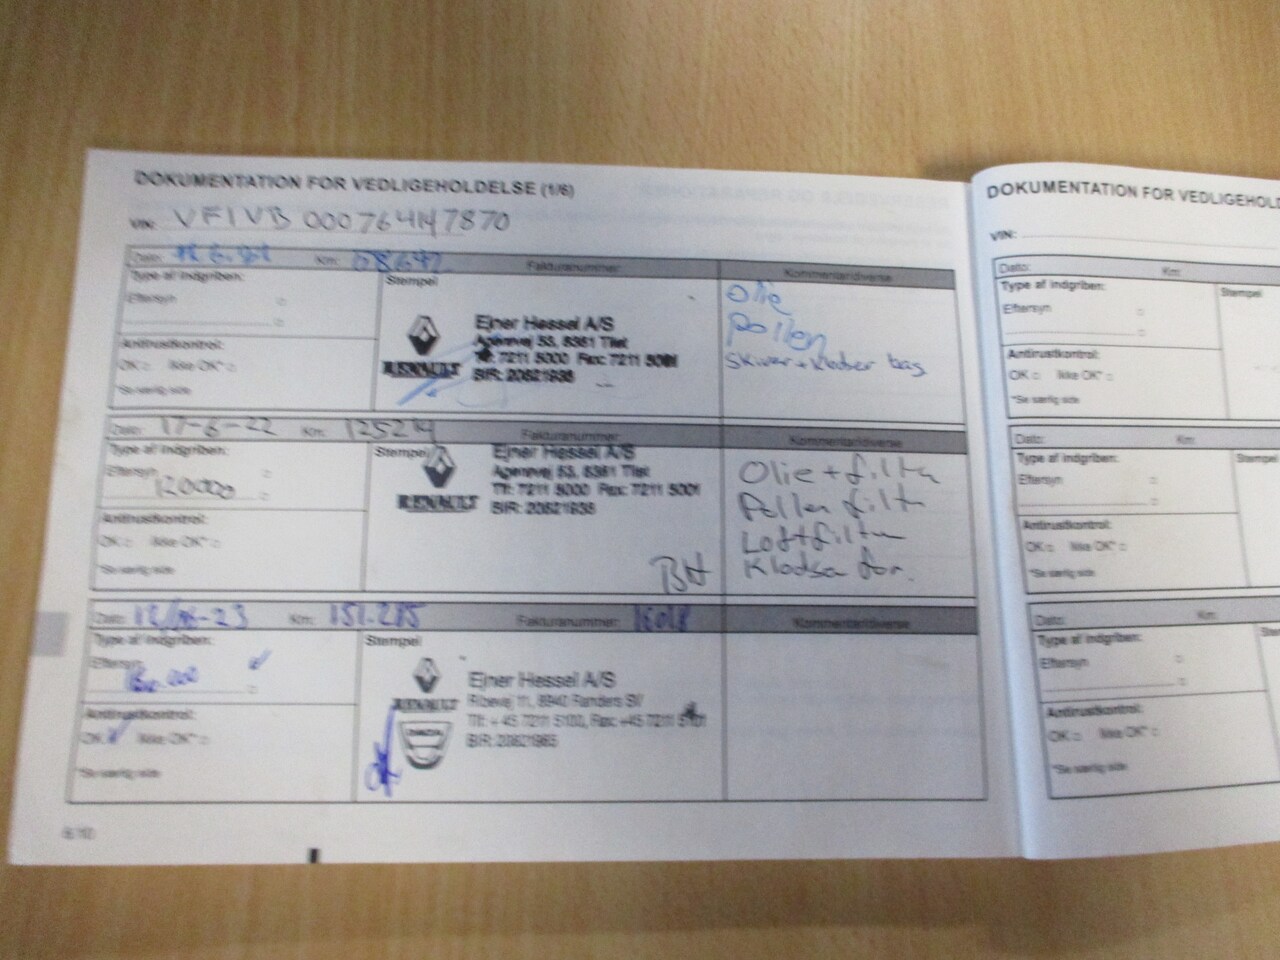 DOKUMENTATION FOR VEDLIGEHOLDELSE (1/6)
VIN:
Dato: Km: Fakturanummer: Kommentar/diverse
Type af indgriben:
Eftersyn
Antirustkontrol:
OK □ Ikke OK* □
*Se særlig side
Stempel
RENAULT
Ejner Hessel A/S
Agerøvej 53, 8381 Tilst
Tlf: 7211 5000 Fax: 7211 5001
Olie
Pollen
Skiver + klodser bag
Dato: 17-6-22 Km: 125214 Fakturanummer: Kommentar/diverse
Type af indgriben:
Eftersyn
120000
Antirustkontrol:
OK □ Ikke OK* □
*Se særlig side
Stempel
RENAULT
Ejner Hessel A/S
Agerøvej 53, 8381 Tilst
Tlf: 7211 5000 Fax: 7211 5001
BH
Olie + filter
Pollen filter
Luftfilter
Klodser for.
Dato: Km: 151.285 Fakturanummer: Kommentar/diverse
Type af indgriben:
Eftersyn
Antirustkontrol:
OK □ Ikke OK* □
*Se særlig side
Stempel
RENAULT
DACIA
Ejner Hessel A/S
Ribevej 11, 8940 Randers SV
Tlf: + 45 7211 5100, Fax: +45 7211 5101
DOKUMENTATION FOR VEDLIGEHOLD
VIN:
Dato: Km:
Type af indgriben:
Stempel
Eftersyn
Antirustkontrol:
OK □ Ikke OK* □
*Se særlig side
Dato: Km:
Type af indgriben:
Stempel
Eftersyn
Antirustkontrol:
OK □ Ikke OK* □
*Se særlig side
Dato: Km:
Type af indgriben:
Eftersyn
Antirustkontrol:
OK □ Ikke OK* □
*Se særlig side